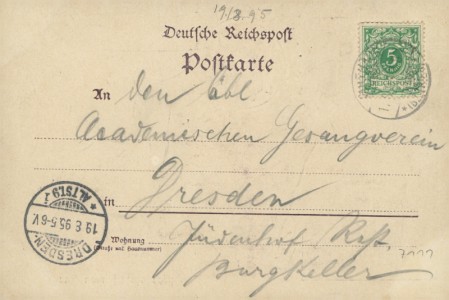 19/8.95
Deutsche Reichspost
Postkarte
5
REICHSPOST
An den Löbl
Academischen Gesangverein
in Dresden
Wohnung
(Straße und Hausnummer)
Jüdenhof Rest.
Burgkeller
DRESDEN-ALTST.9
19 8 95.5-6 V.